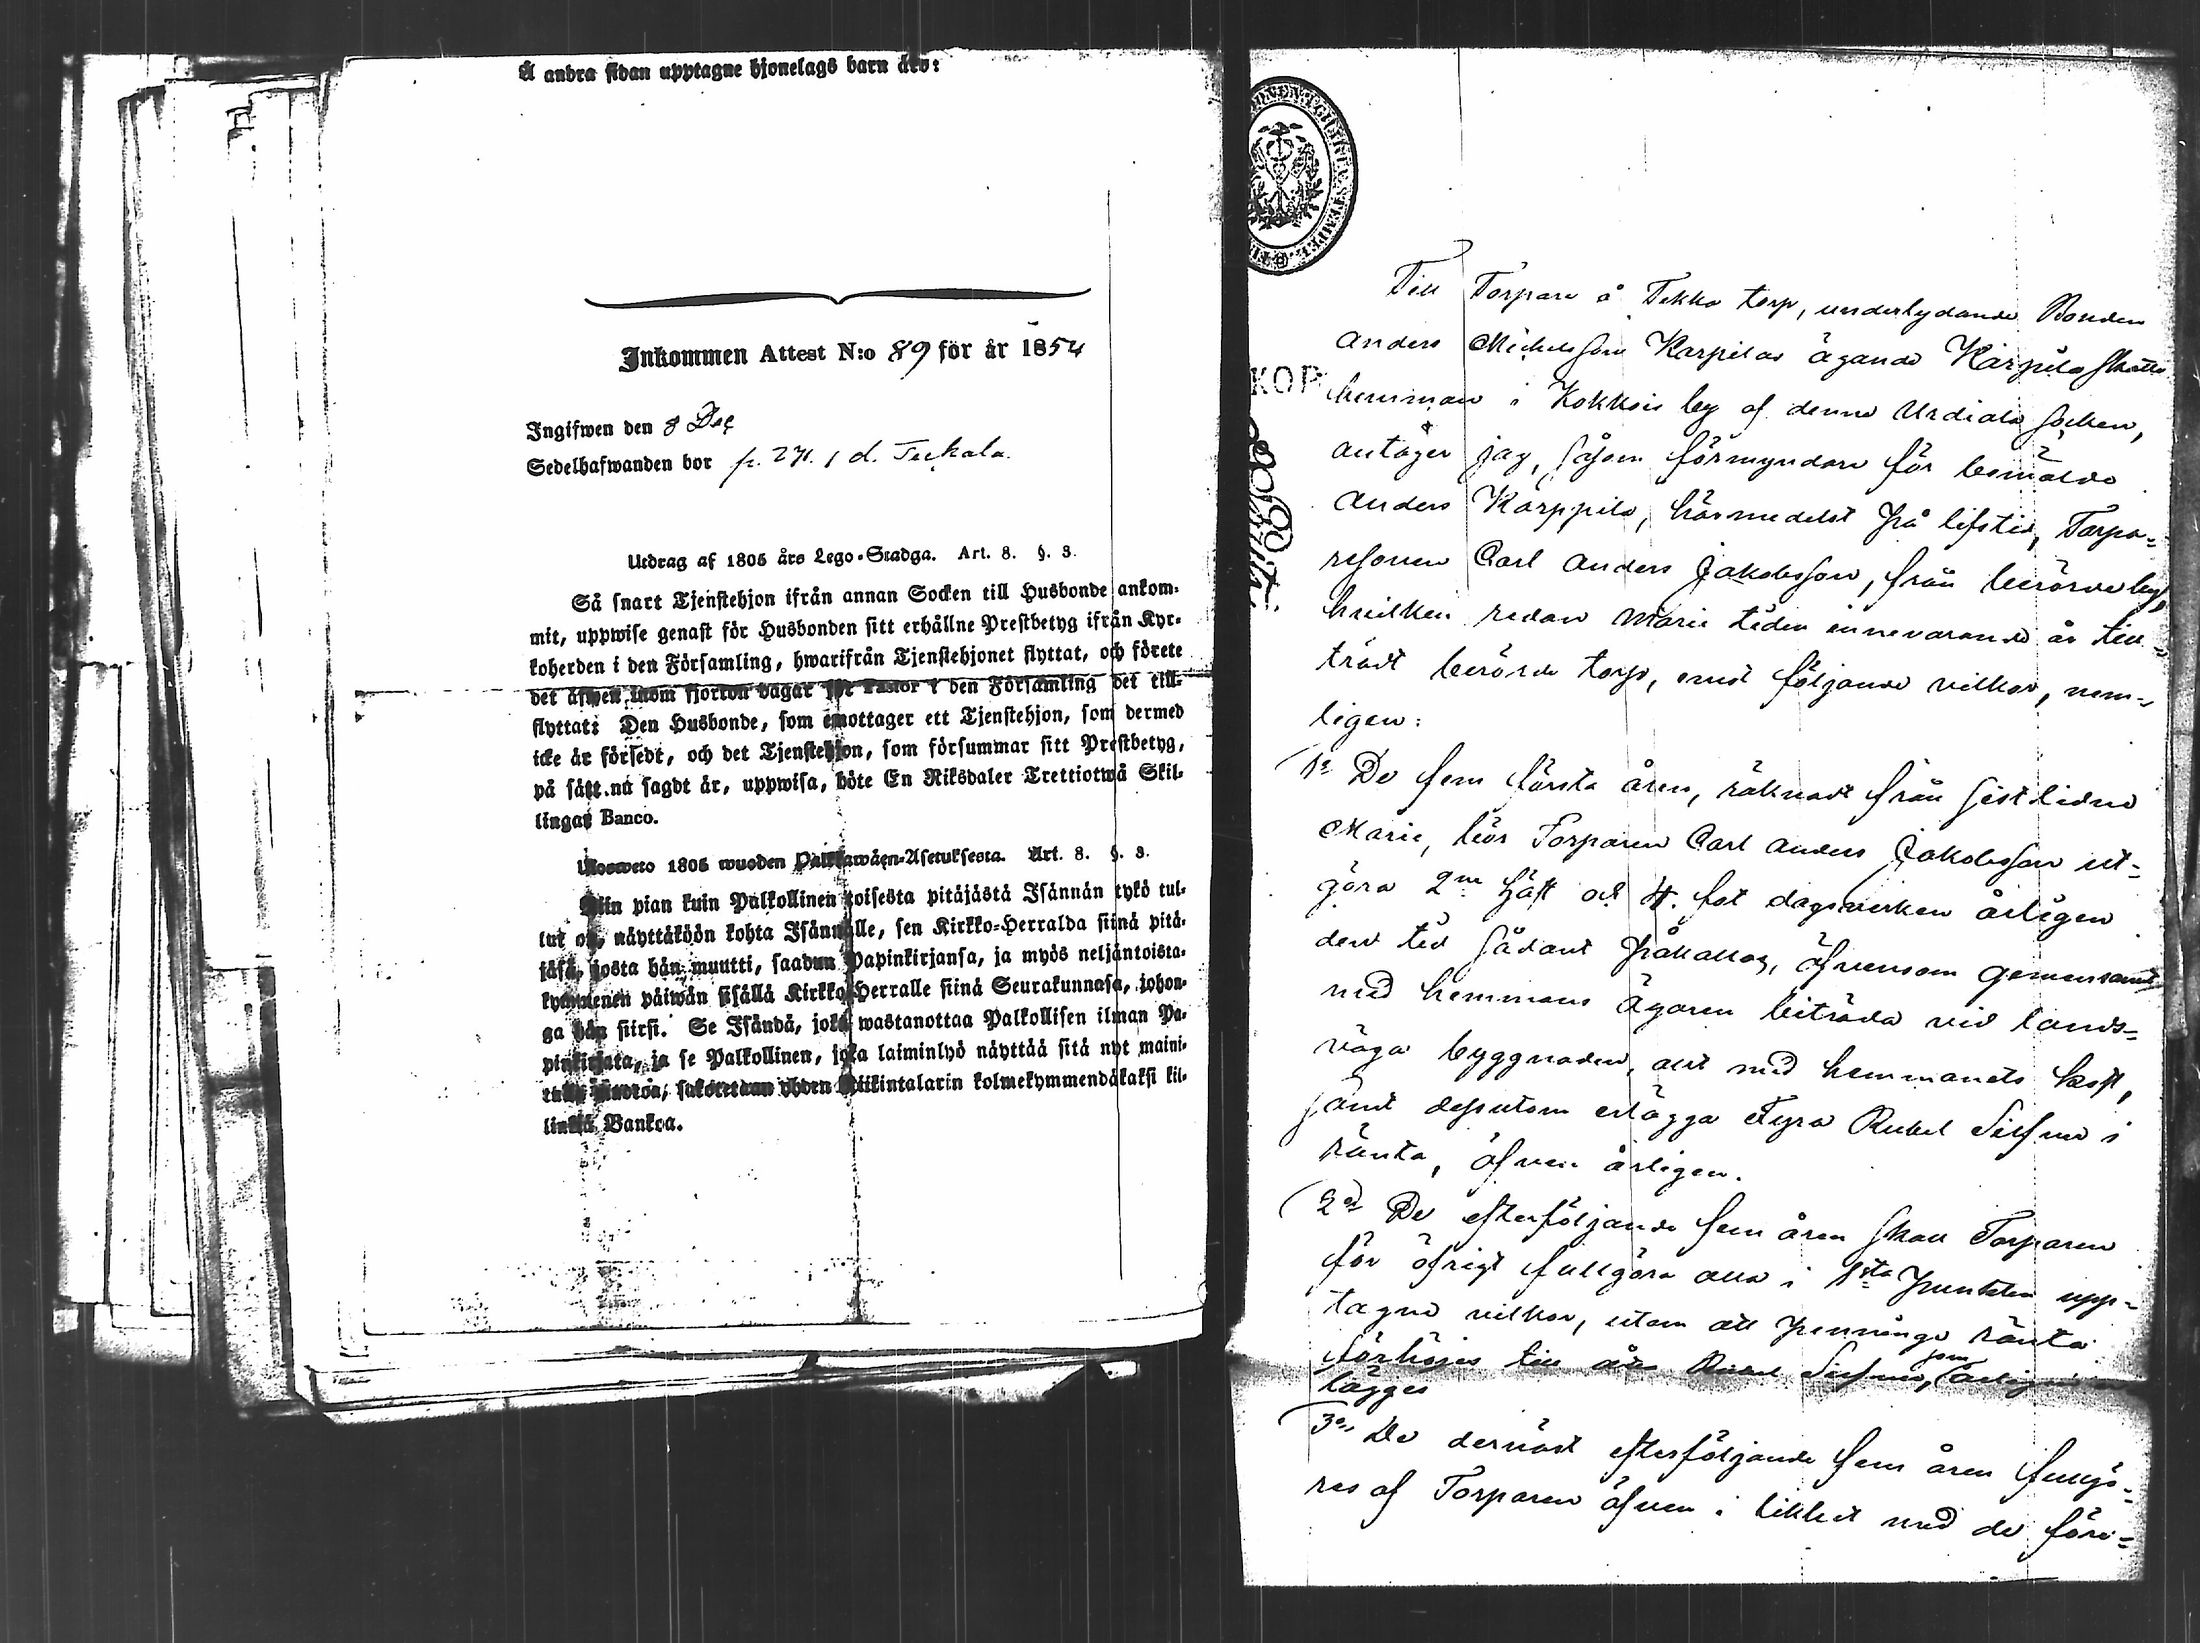 Å andra sidan upptagne hjonelags barn äro:
Inkommen Attest N:o 89 för år 1854
Ingifwen den 8 Dec
Sedelhafwanden bor p. 271. / d. Tuckala.
Utdrag af 1805 års Lego-Stadga. Art. 8. §. 3.
Så snart Tjenstehjon ifrån annan Socken till Husbonde ankom-
mit, uppwise genast för Husbonden sitt erhållne Prestbetyg ifrån Kyr-
koherden i den Församling, hwarifrån Tjenstehjonet flyttat, och förete
det äfwen inom fjorton dagar för Pastor i den Församling det till-
flyttat: Den Husbonde, som emottager ett Tjenstehjon, som dermed
icke är försedt, och det Tjenstehjon, som försummar sitt Prestbetyg,
på sätt nu sagdt är, uppwisa, böte En Riksdaler Trettiotwå Skil-
lingar Banco.
Uloosweto 1805 wuoden Palkkawäen-Asetuksesta. Art. 8. §. 3.
Niin pian kuin Palkollinen toisesta pitäjästä Isännän tykö tul-
lut on, näyttäköön kohta Isännälle, sen Kirkko-Herralda siinä pitä-
jäsä, josta hän muutti, saadun Papinkirjansa, ja myös neljäntoista-
kymmenen päiwän sisällä Kirkko-Herralle siinä Seurakunnasa, johon-
ga hän siirsi. Se Isändä, joka wastanottaa Palkollisen ilman Pa-
pinkirjata, ja se Palkollinen, joka laiminlyö näyttää sitä nyt maini-
tulla muotoa, sakoitetaan yhden Riikintalarin kolmekymmendäkaksi kil-
linkiä Bankoa.
KOP
Till Torpare å Tekko torp, underlydande Bonden
Anders Michelsson Karpilas ägande Kärpila Skatte
hemman i Kokkois by af denne Urdiala Socken,
antager jag, såsom förmyndare för bemälde
Anders Kärppilä, härmedelst på lifstid, Torpa-
resonen Carl Anders Jakobsson, från berörde by,
hvilken redan Marie tiden innevarande år till-
trädt berörde torp, emot följande vilkor, nem-
ligen:
1o De fem första åren, räknadt från sistlidne
Marie, bör Torparen Carl Anders Jakobsson ut-
göra 2ne häst och 4. fot dagsverken årligen
den tid sådant påkallas, äfvensom gemensamt
med hemmans ägaren biträda vid lands-
väga byggnaden, allt med hemmanets kost,
samt dessutom erlägga Fyra Rubel Silfver i
ränta, äfven årligen.
2o De efterföljande fem åren skall Torparen
för öfrigt fullgöra alla i 1sta punkten upp-
tagne vilkor, utom att pennings ränta
förhöjes till Rubel Silfver, som årligen
lägges
3o De dernäst efterföljande fem åren fullgö-
res af Torparen äfven i likhet med de före-